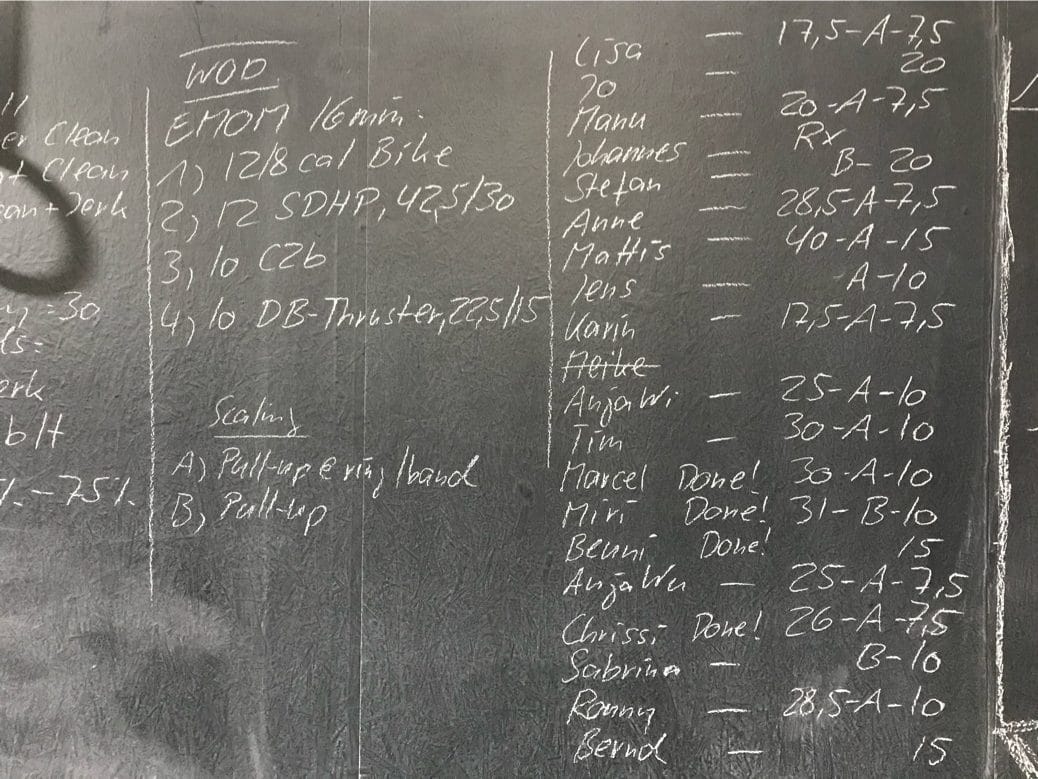 ll
er Clean
t Clean
ean + Jerk
= 30
ds:
erk
b/t
% - 75%
WOD
EMOM 16min.
1) 12/8 cal Bike
2) 12 SDHP, 42,5/30
3) 10 C2b
4) 10 DB-Thruster, 22,5/15
Scaling
A) Pull-up @ ring/band
B) Pull-up
Lisa — 17,5-A-7,5
Jo — 20
Manu — 20-A-7,5
Johannes — Rx
Stefan — B-20
Anne — 28,5-A-7,5
Mattis — 40-A-15
Jens — A-10
Karin — 17,5-A-7,5
Heike
AnjaWi — 25-A-10
Tim — 30-A-10
Marcel Done! 30-A-10
Miri Done! 31-B-10
Benni Done! 15
AnjaWu — 25-A-7,5
Chrissi Done! 26-A-7,5
Sabrina — B-10
Ronny — 28,5-A-10
Bernd — 15